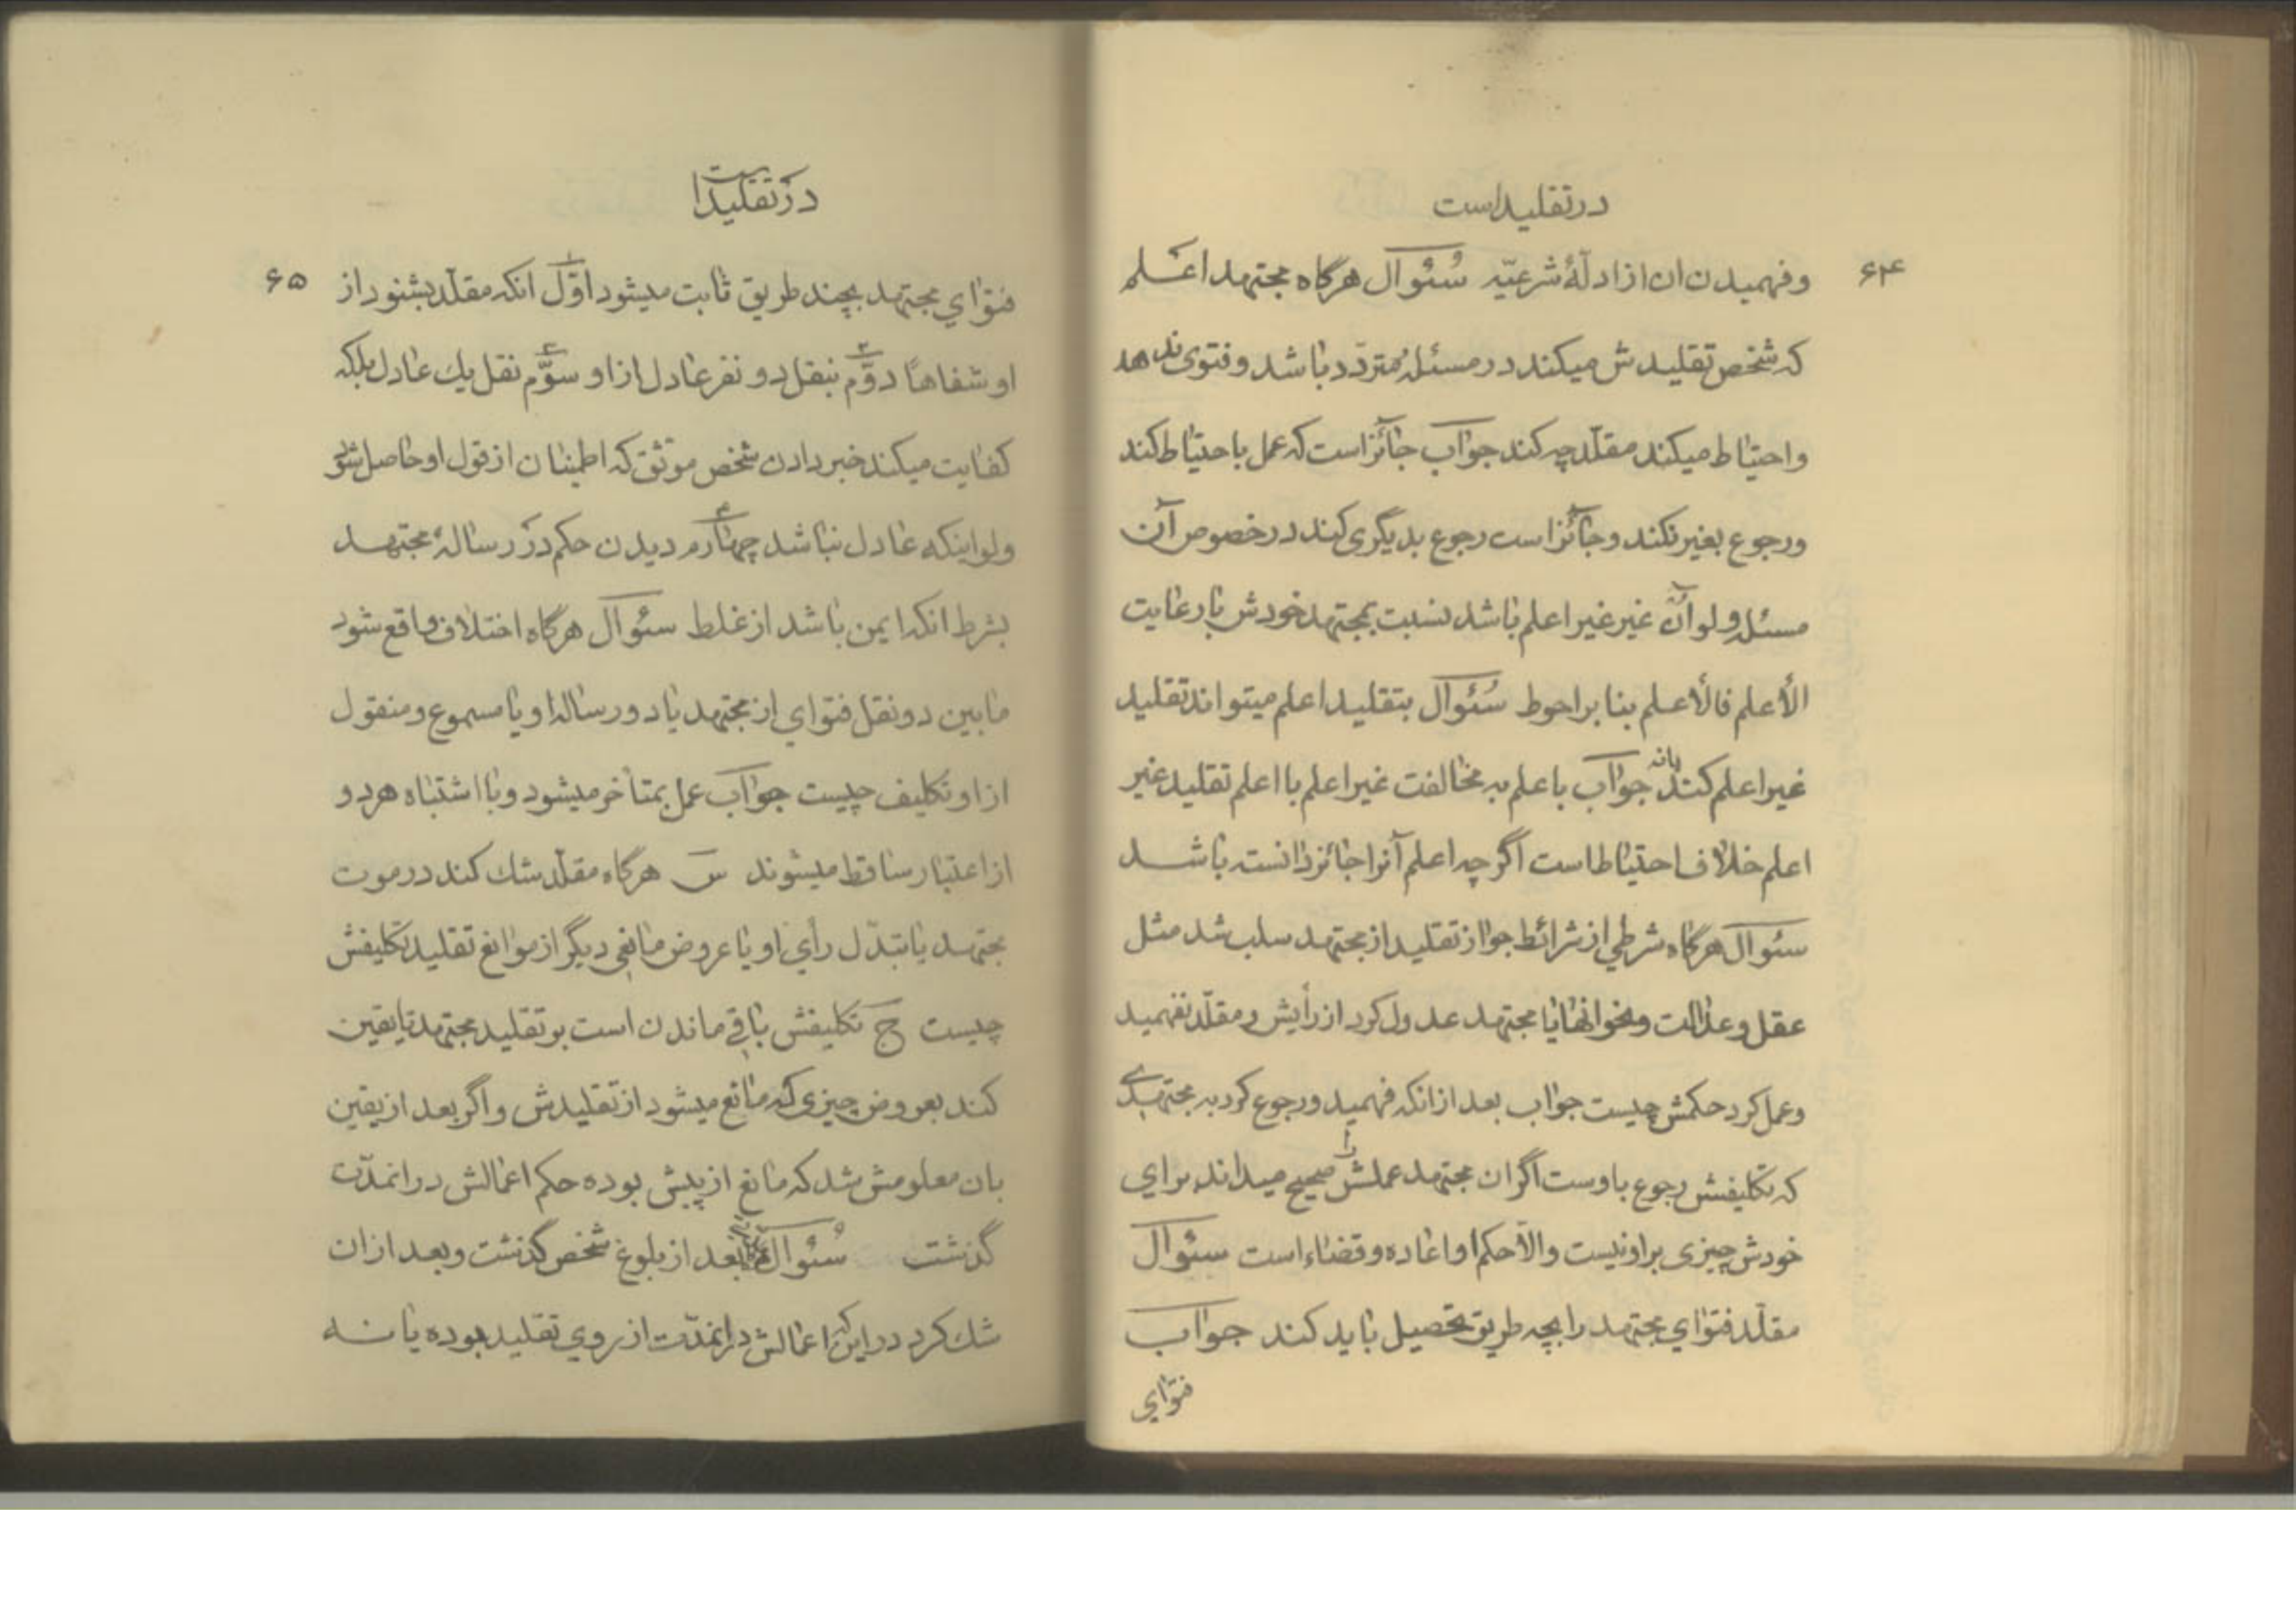 در تقلید است
۶۴
وفهمیدن ان از ادلّهٔ شرعیّه سُئوال هرگاه مجتهد اعلم
که شخص تقلیدش میکند در مسئله متردّد باشد و فتوی ندهد
واحتیاط میکند مقلّد چه کند جواب جائز است که عمل باحتیاط کند
ورجوع بغیر نکند وجائز است رجوع بدیگری کند در خصوص آن
مسئله ولو آن غیر غیر اعلم باشد نسبت بمجتهد خودش بارعایت
الأعلم فالأعلم بنا بر احوط سُئوال بتقلید اعلم میتواند تقلید
غیر اعلم کند یانه جواب با علم به مخالفت غیر اعلم با اعلم تقلید غیر
اعلم خلاف احتیاط است اگرچه اعلم آنرا جائز دانسته باشد
سئوال هرگاه شرطی از شرائط جواز تقلید از مجتهد سلب شد مثل
عقل وعدالت ونحو انها یا مجتهد عدول کرد از رأیش و مقلّد نفهمید
وعمل کرد حکمش چیست جواب بعد از انکه فهمید ورجوع کرد به مجتهدی
که تکلیفش رجوع باوست اگر ان مجتهد عملش را صحیح میداند برای
خودش چیزی بر او نیست والّا حکم او اعاده وقضاء است سئوال
مقلّد فتوای مجتهد را بچه طریق تحصیل باید کند جواب
فتوای
در تقلید است
۶۵
فتوای مجتهد بچند طریق ثابت میشود اوّل ۱ انکه مقلّد بشنود از
او شفاهاً دوّم ۲ بنقل دو نفر عادل از او سوّم ۳ نقل یك عادل بلکه
کفایت میکند خبر دادن شخص موثق که اطمینان از قول او حاصل شود
ولو اینکه عادل نباشد چهارم ۴ دیدن حکم در رسالهٔ مجتهد
بشرط انکه ایمن باشد از غلط سئوال هرگاه اختلاف واقع شود
مابین دو نقل فتوای از مجتهد یا دو رساله او یا مسموع ومنقول
از او تکلیف چیست جواب عمل بمتأخر میشود وبا اشتباه هر دو
از اعتبار ساقط میشوند س هرگاه مقلّد شك کند در موت
مجتهد یا تبدّل رأی او یا عروض مانعی دیگر از موانع تقلید تکلیفش
چیست ج تکلیفش باقی ماندن است بر تقلید مجتهد تا یقین
کند بعروض چیزی که مانع میشود از تقلیدش واگر بعد از یقین
بان معلومش شد که مانع از پیش بوده حکم اعمالش در انمدّت
گذشت سُئوال بعد از بلوغ شخص گذشت وبعد از ان
شك کرد در این که اعمالش در انمدّت از روی تقلید بوده یا نه